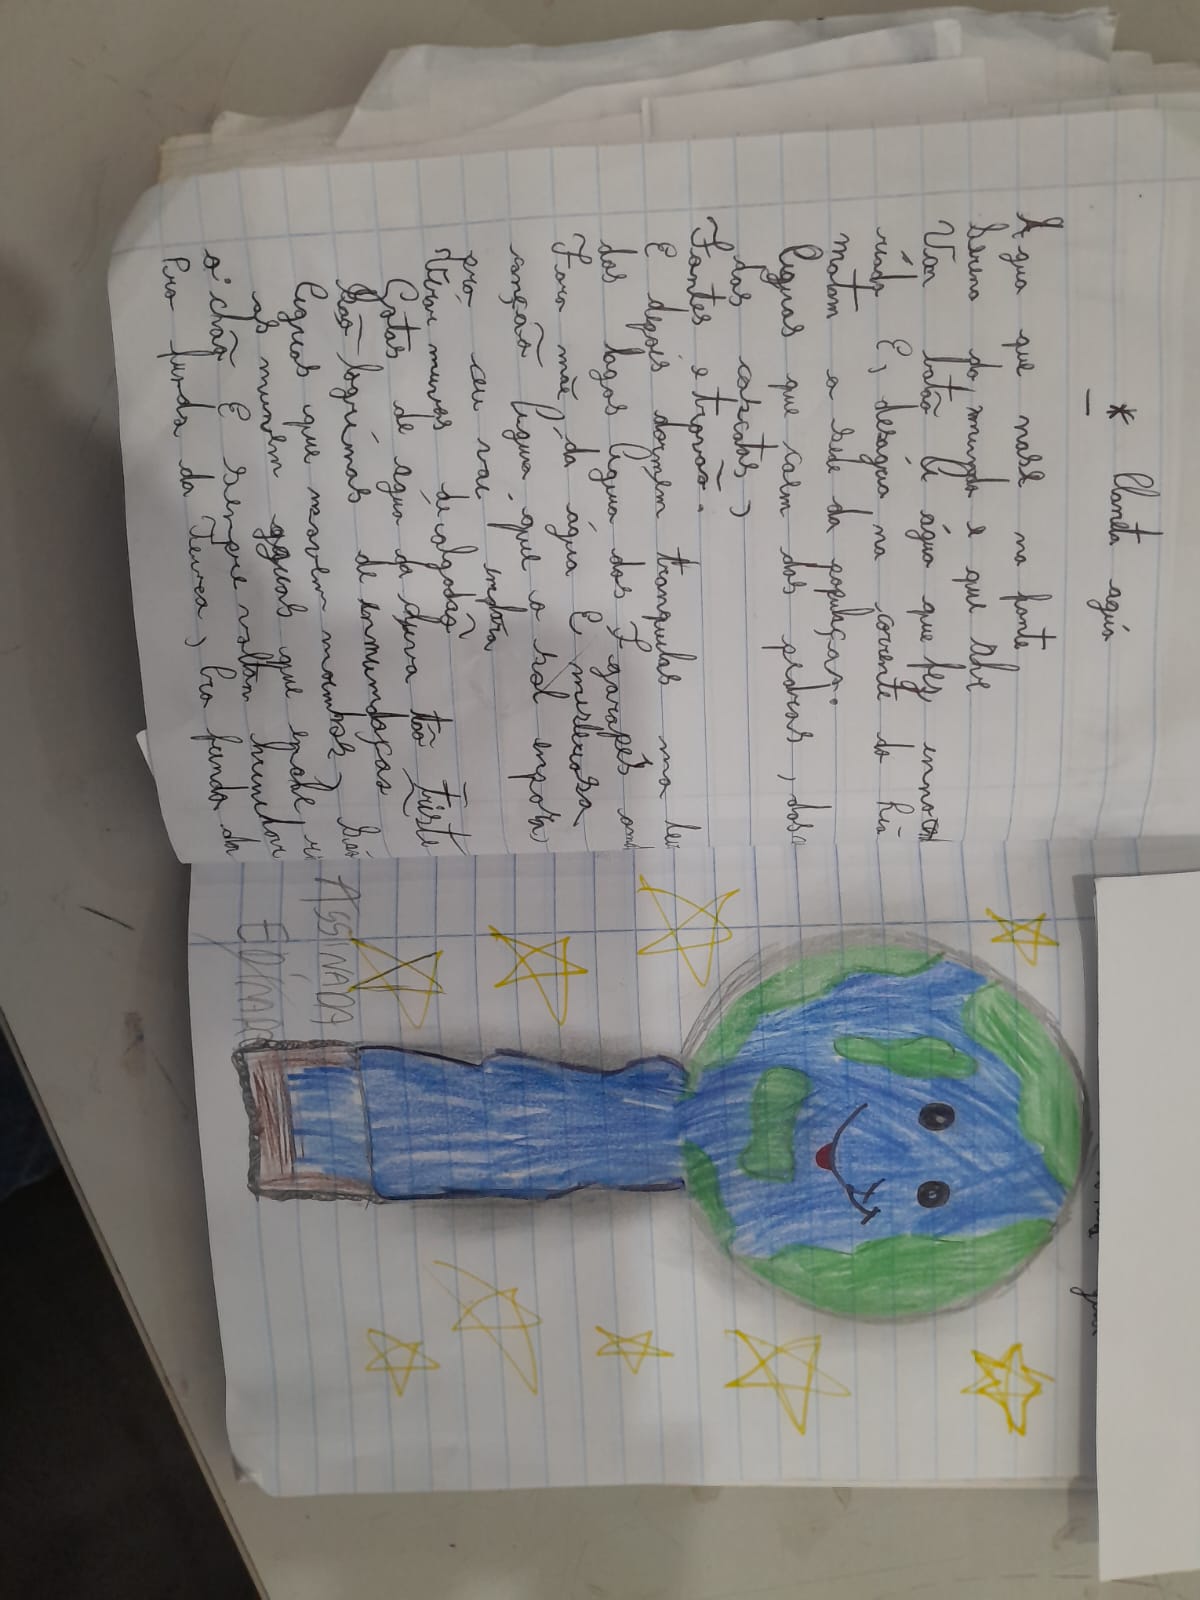 * Planeta aguá
A gua que nase na fonte
Serena do, mundo e que Abre
Vão batão lé água que fez inno
rióda E, deságua na corrente do Rio
matam a sede da população.
Águas que caem das pedras, das
das cascatas)
Fontes e trovão.
E depois dormem tranquilas no lei
dos lagos Água dos I garapés ond
Iara mãe, da água E misteriosa
canção Água, que o sol enpora,
pró céu vai enbora
Virar nuvens de algodão
Gotas de água da chuva tão triste
São lagrimas de enmundação
Águas que movem moinhos) São
as mesmem aguas que encharc
o' chão E Sempre voltam humildem
Pro fundo da Terra, Pro fundo da
ASSINADA